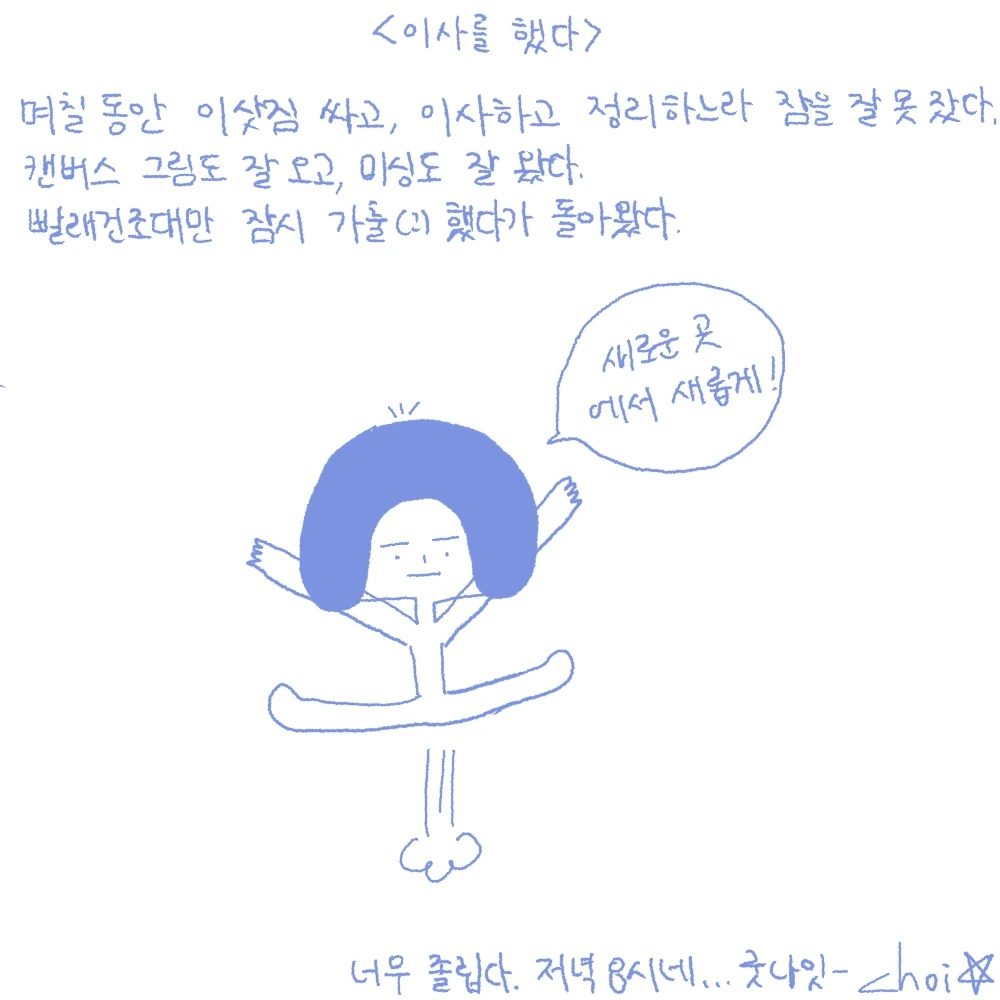 <이사를 했다>
며칠 동안 이삿짐 싸고, 이사하고 정리하느라 잠을 잘 못 잤다.
캔버스 그림도 잘 오고, 미싱도 잘 왔다.
빨래건조대만 잠시 가출(?) 했다가 돌아왔다.
새로운 곳
에서 새롭게!
너무 졸립다. 저녁 8시네... 굿나잇- choi☆